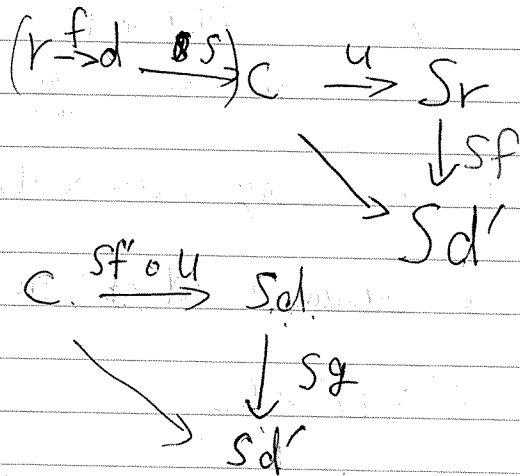 (r →f d → S) C →u Sr
↓ Sf
Sd'
C. →Sf' ∘ u Sd.
↓ Sg
Sd'